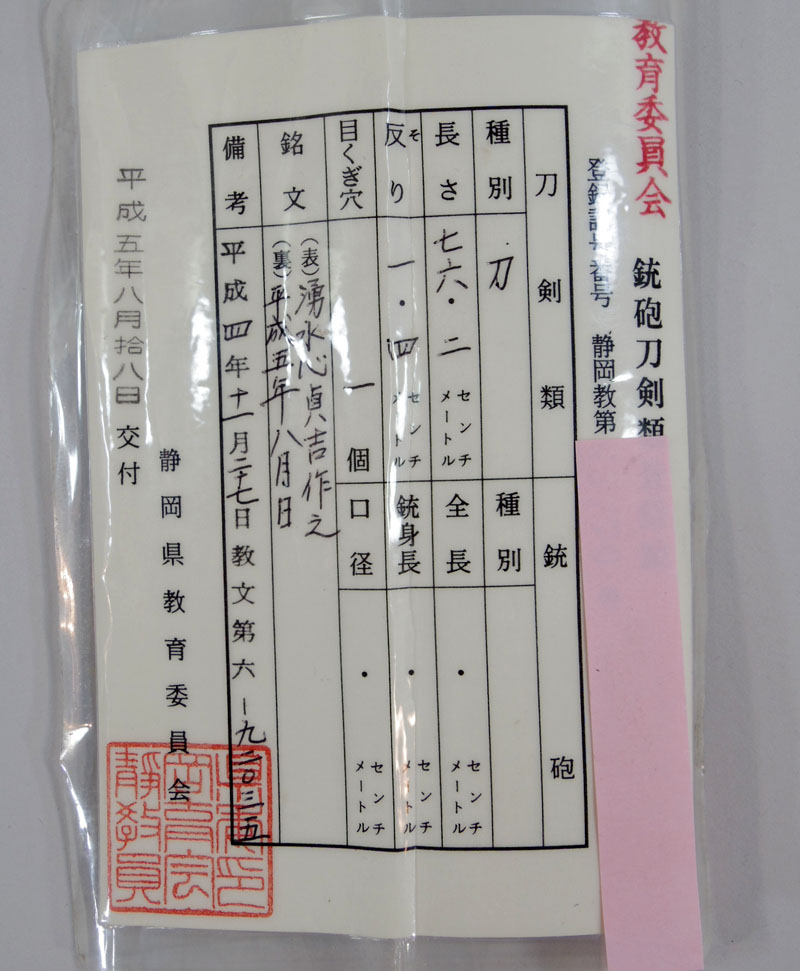 教育委員会
銃砲刀剣類
登録記号番号 静岡教第
刀剣類
銃砲
種別 刀
長さ 七六・二 センチメートル
反り そ 一・四 センチメートル
目くぎ穴 一個
種別
全長 ・ センチメートル
銃身長 ・ センチメートル
口径 ・ センチメートル
銘文
(表)湧水心貞吉作之
(裏)平成五年八月日
備考 平成四年十一月二十七日教文第六-九二〇-三五
静岡県教育委員会
平成五年八月拾八日 交付